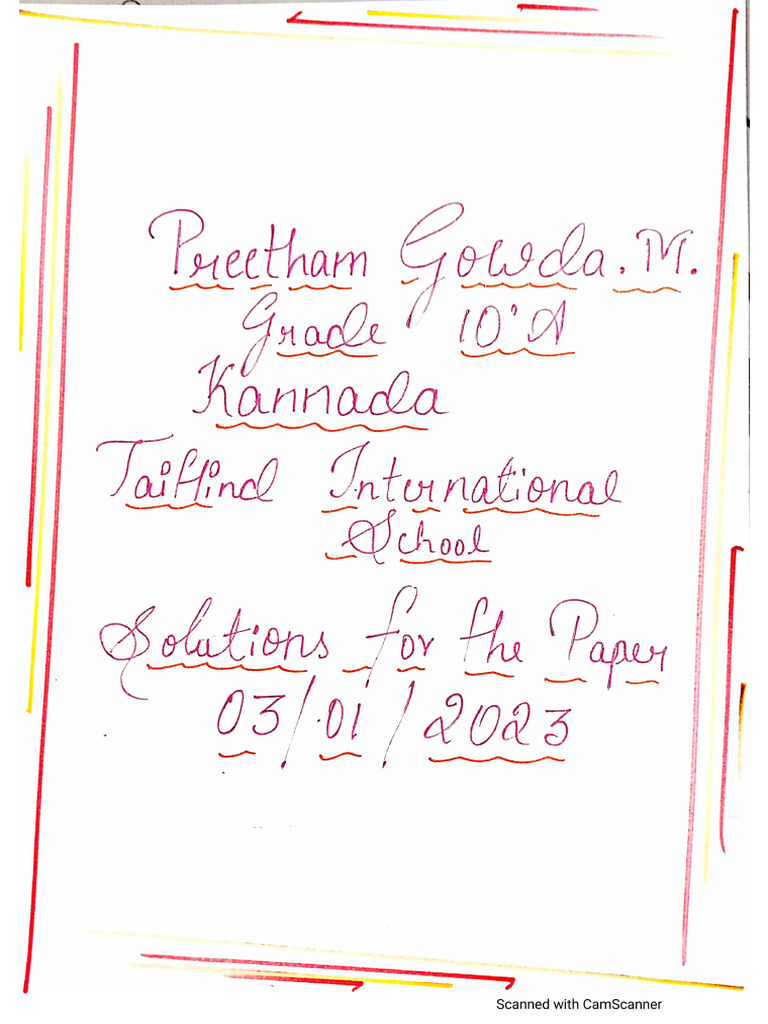 Preetham Gowda. M.
Grade 10'A
Kannada
Taiffind International
School
Solutions for the Paper
03/01/2023
Scanned with CamScanner